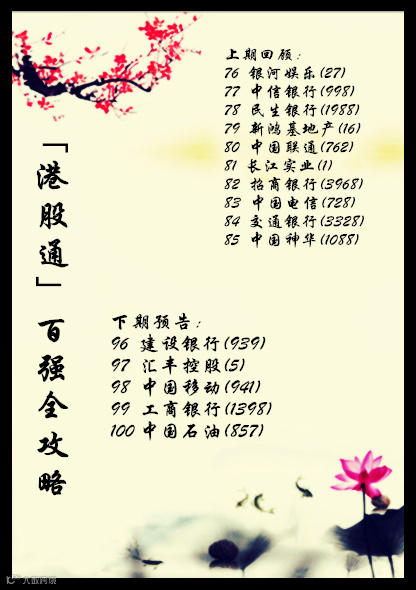 「港股通」百强全攻略
上期回顾:
76 银河娱乐(27)
77 中信银行(998)
78 民生银行(1988)
79 新鸿基地产(16)
80 中国联通(762)
81 长江实业(1)
82 招商银行(3968)
83 中国电信(728)
84 交通银行(3328)
85 中国神华(1088)
下期预告:
96 建设银行(939)
97 汇丰控股(5)
98 中国移动(941)
99 工商银行(1398)
100 中国石油(857)